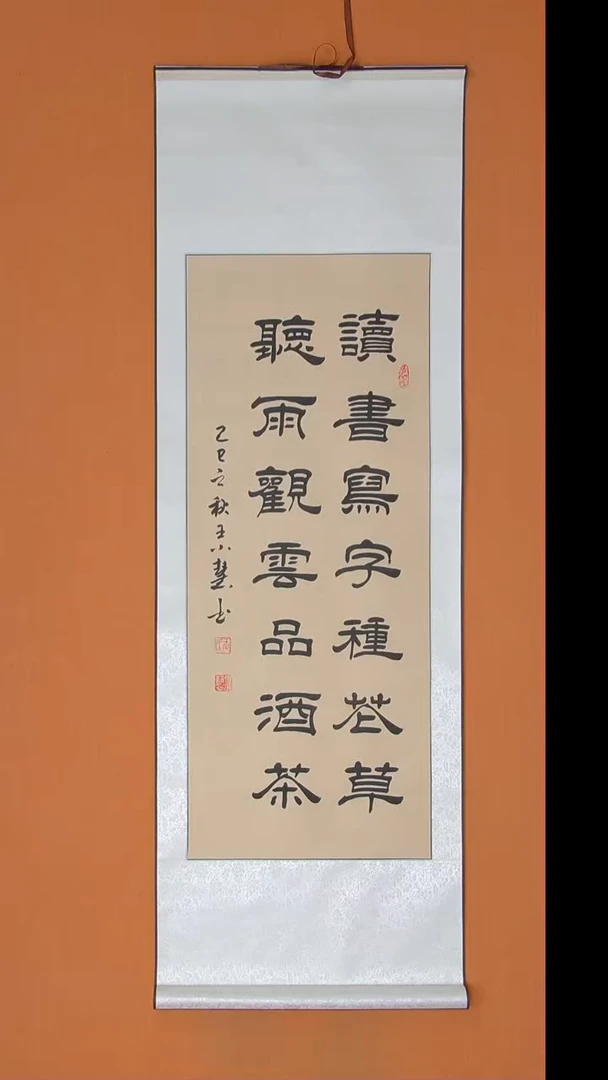 讀書寫字種花草
聽雨觀雲品酒茶
乙巳立秋王小慧書